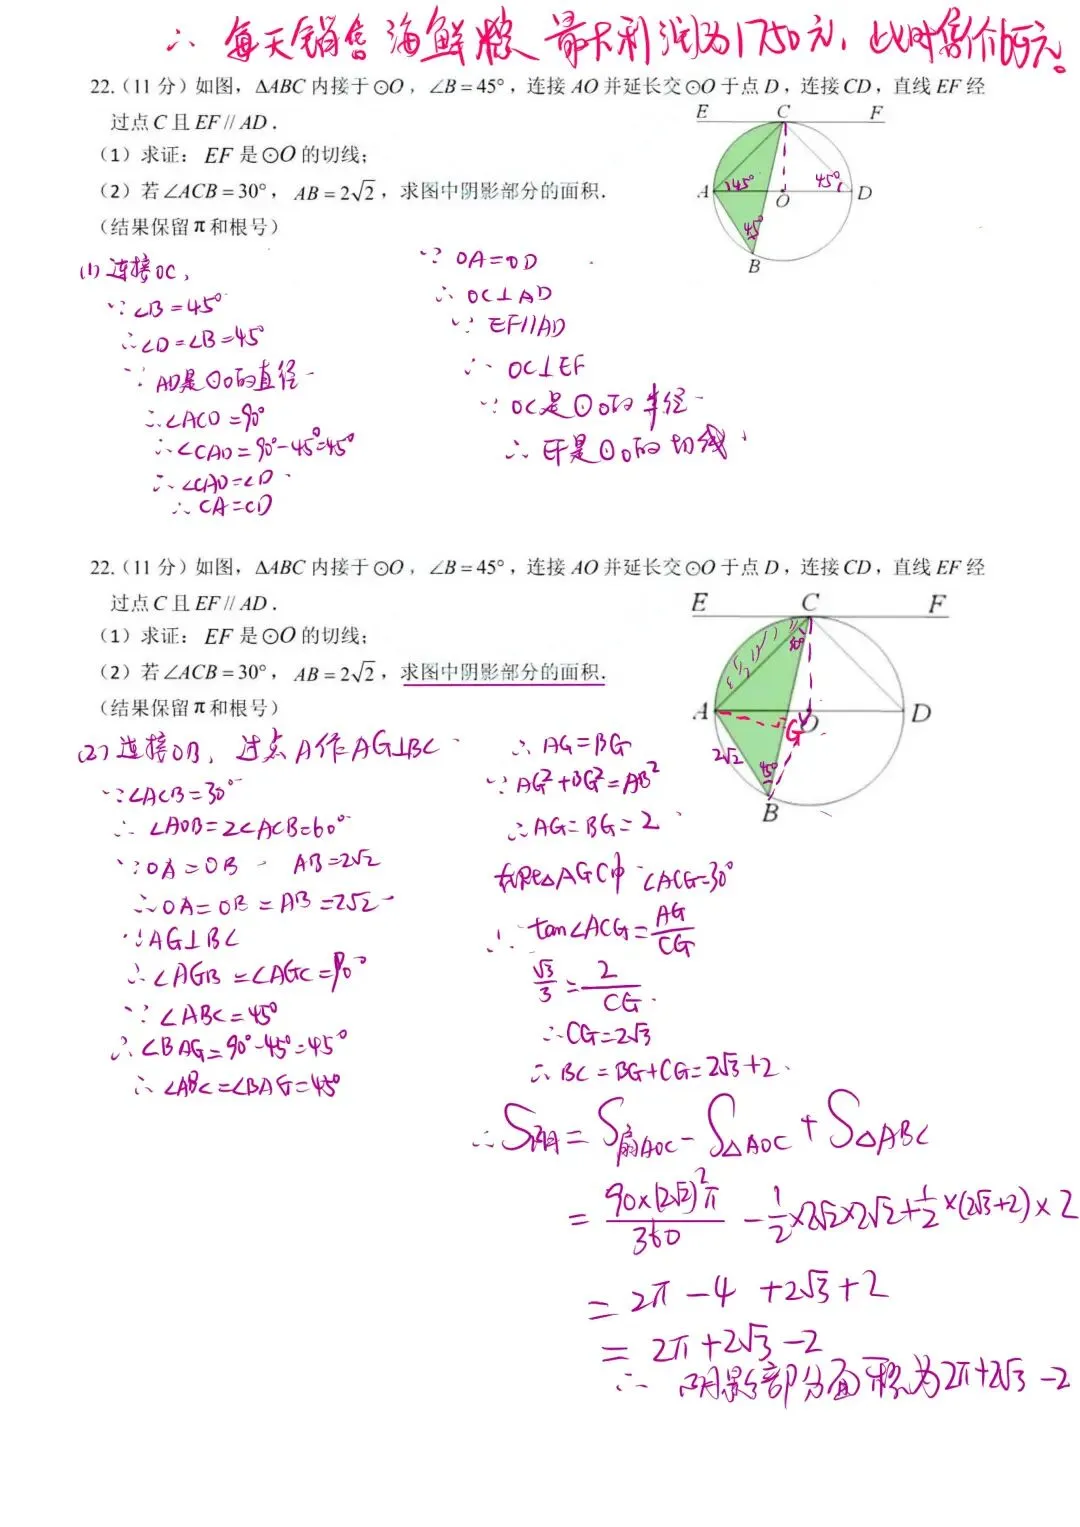 ∴ 每天销售海鲜粽 最大利润为1750元，此时售价65元。
22.（11 分）如图，ΔABC 内接于⊙O，∠B = 45°，连接 AO 并延长交⊙O 于点 D，连接 CD，直线 EF 经
过点 C 且 EF // AD．
E C F
（1）求证：EF 是⊙O 的切线；
（2）若∠ACB = 30°，AB = 2√2，求图中阴影部分的面积．
A 45° 45° O D
（结果保留 π 和根号）
45°
B
(1) 连接OC，
∵ ∠B = 45°
∴ ∠D = ∠B = 45°
∵ AD是⊙O的直径
∴ ∠ACD = 90°
∴ ∠CAD = 90° - 45° = 45°
∴ ∠CAD = ∠D
∴ CA = CD
∵ OA = OD
∴ OC⊥AD
∵ EF//AD
∴ OC⊥EF
∵ OC是⊙O的半径
∴ EF是⊙O的切线
22.（11 分）如图，ΔABC 内接于⊙O，∠B = 45°，连接 AO 并延长交⊙O 于点 D，连接 CD，直线 EF 经
过点 C 且 EF // AD．
E C F
（1）求证：EF 是⊙O 的切线；
30°
（2）若∠ACB = 30°，AB = 2√2，求图中阴影部分的面积．
（结果保留 π 和根号）
A G O D
2√2 45°
B
(2) 连接OB，过点A作AG⊥BC
∵ ∠ACB = 30°
∴ ∠AOB = 2∠ACB = 60°
∵ OA = OB AB = 2√2
∴ OA = OB = AB = 2√2
∵ AG⊥BC
∴ ∠AGB = ∠AGC = 90°
∵ ∠ABC = 45°
∴ ∠BAG = 90° - 45° = 45°
∴ ∠ABC = ∠BAG = 45°
∴ AG = BG
∵ AG² + BG² = AB²
∴ AG = BG = 2
在Rt△AGC中 ∠ACG = 30°
∴ tan∠ACG = AG/CG
√3/3 = 2/CG
∴ CG = 2√3
∴ BC = BG + CG = 2√3 + 2
∴ S阴 = S扇AOC - S△AOC + S△ABC
= 90×(2√2)²π/360 - 1/2×2√2×2√2 + 1/2×(2√3+2)×2
= 2π - 4 + 2√3 + 2
= 2π + 2√3 - 2
∴ 阴影部分面积为2π+2√3-2